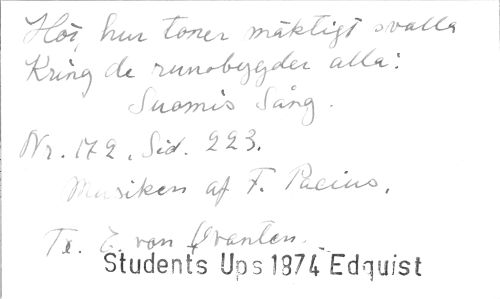 Hör, hur toner mäktigt svalla
Kring de runobygder alla:
Suomis Sång.
Nr. 172. Sid. 223.
Musiken af F. Pacius.
Te. E. von Qvanten.
Students Ups 1874 Edquist